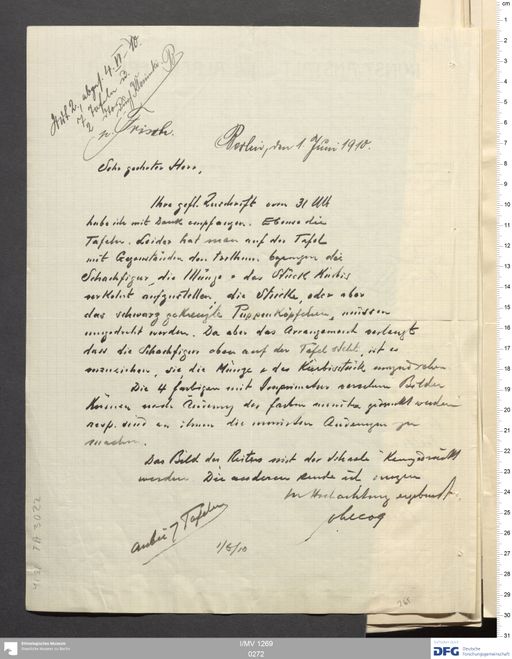 abges. 4. VI. 10.
v. Frisch.
Berlin, den 1. Juni 1910.
Sehr geehrter Herr,
Ihre gefl. Zuschrift vom 31 Ult
habe ich mit Dank empfangen. Ebenso die
Tafeln. Leider hat man auf der Tafel
mit Gegenständen den begangen die
Schachfigur, die Münze & das Stück Kürbis
verkehrt aufzustellen, die Stücke, oder aber
das schwarz gekreuzte Puppenköpfchen, müssen
umgedreht werden. Da aber das Arrangement verlangt
dass die Schachfigur oben auf der Tafel steht, ist es
vorzuziehen, sie die Münze & das Kürbisstück umzudrehen
Die 4 farbigen mit Imprimatur versehenen Bilder
können nach Änderung der Farben gedruckt werden
resp. sind an ihnen die Änderungen zu
machen.
Das Bild des Reiters mit der Schaale
werden. Die anderen sende ich morgen
In Hochachtung ergebenst
vLecoq
anbei 7 Tafeln
1/6/10
I/MV 1269
0272
Ethnologisches Museum
Staatliche Museen zu Berlin
DFG Deutsche
Forschungsgemeinschaft